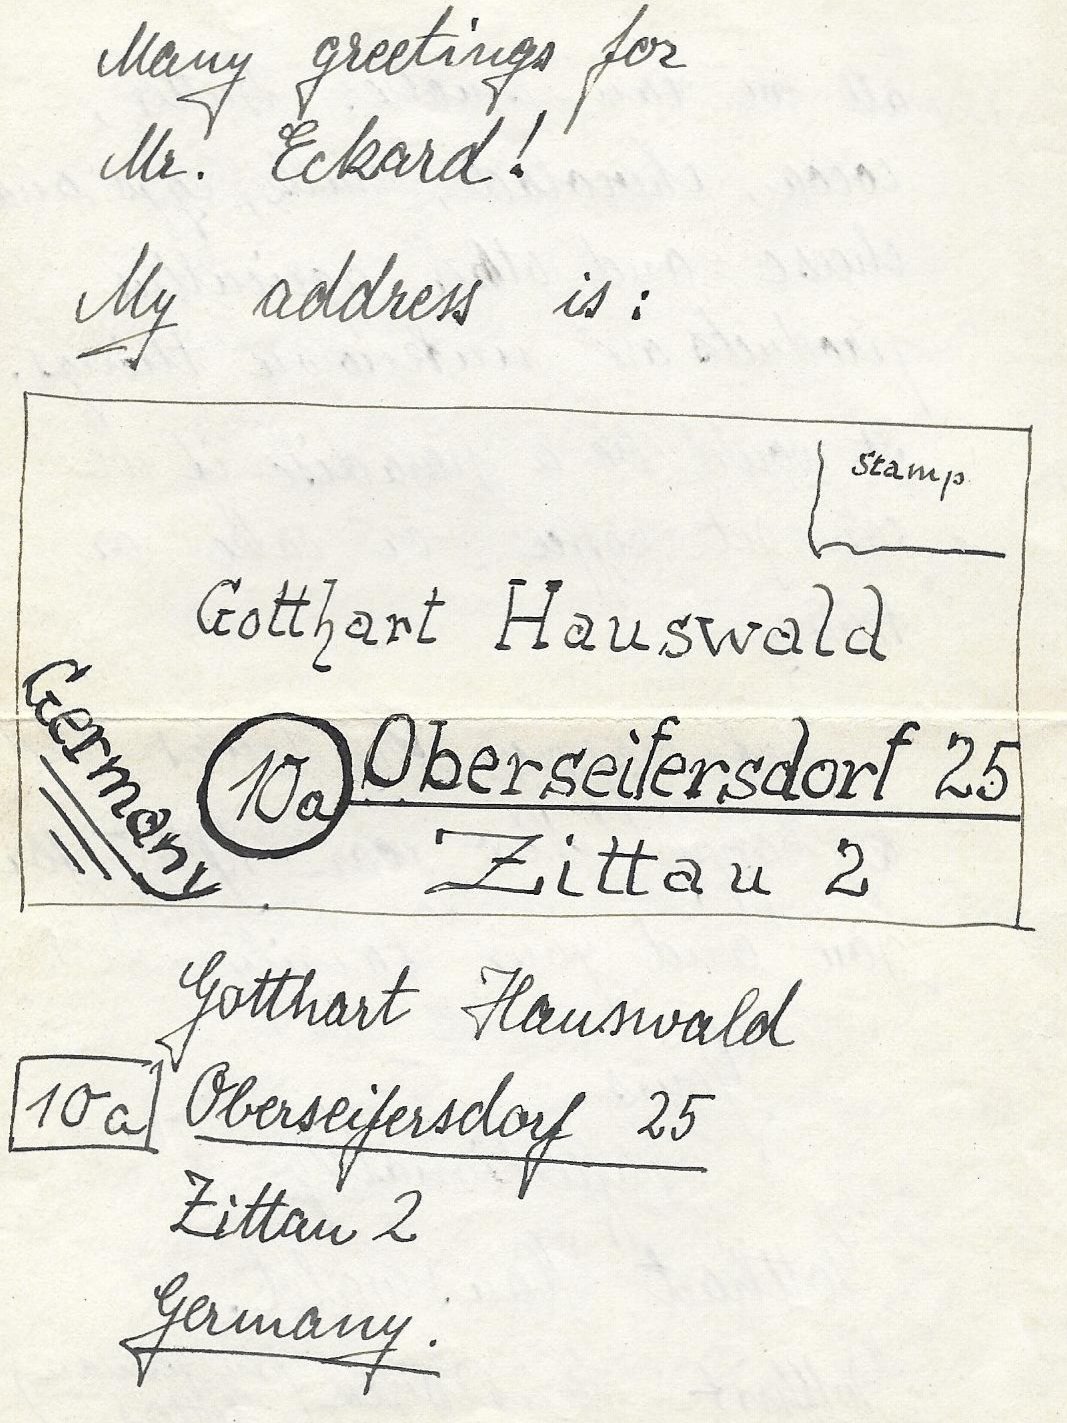 Many greetings for
Mr. Eckard!
My address is:
Stamp
Gotthart Hauswald
Germany
10a Oberseifersdorf 25
Zittau 2
Gotthart Hauswald
10a Oberseifersdorf 25
Zittau 2
Germany.